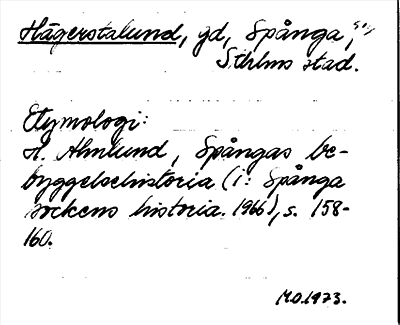 Hägerstalund, gd, Spånga,
Sthlms stad.
Etymologi:
H. Ahnlund, Spångas be-
byggelsehistoria (i: Spånga
sockens historia. 1966), s. 158-
160.
M.O. 1973.